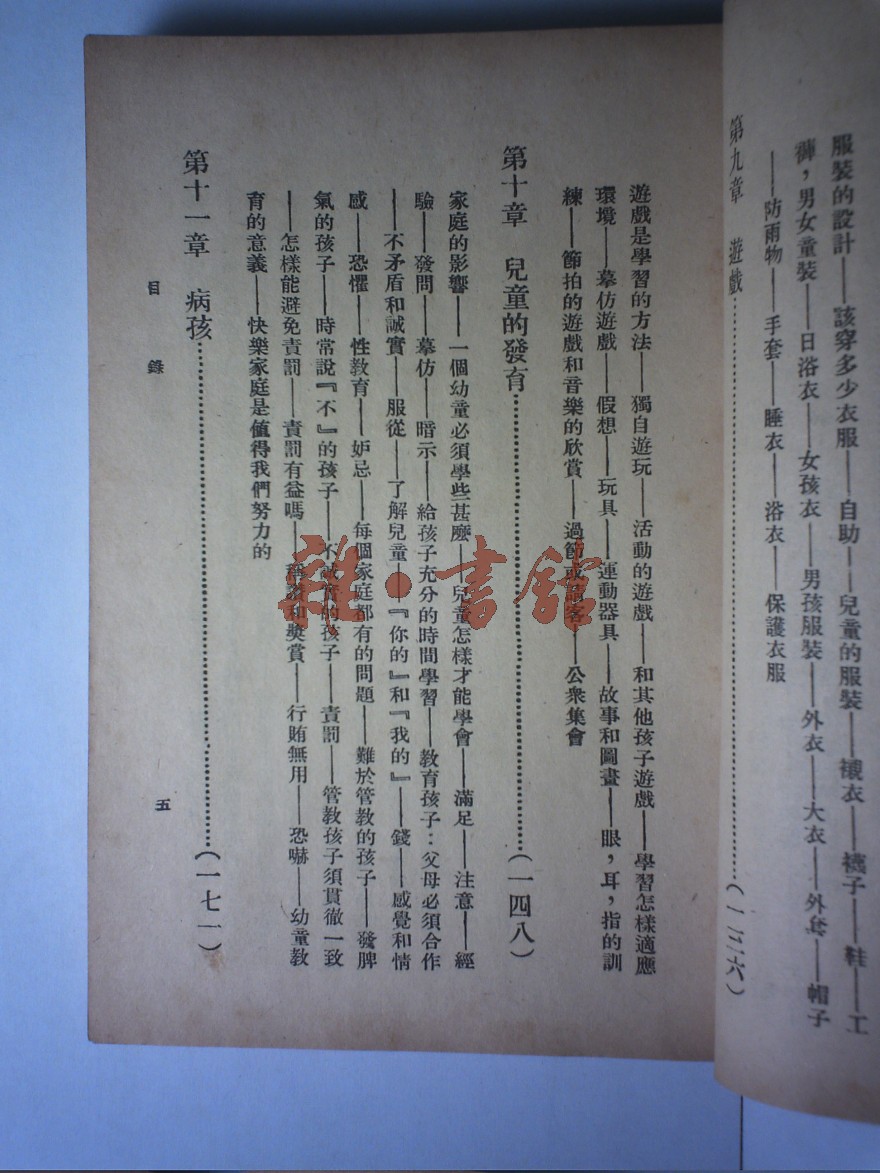 服裝的設計——該穿多少衣服——自助——兒童的服裝——襯衣——襪子——鞋——工
褲，男女童裝——日浴衣——女孩衣——男孩服裝——外衣——大衣——外套——帽子
——防雨物——手套——睡衣——浴衣——保護衣服
第九章　遊戲……………………(一二六)
遊戲是學習的方法——獨自遊玩——活動的遊戲——和其他孩子遊戲——學習怎樣適應
環境——摹仿遊戲——假想——玩具——運動器具——故事和圖畫——眼，耳，指的訓
練——節拍的遊戲和音樂的欣賞——過節或請客——公衆集會
第十章　兒童的發育……………………(一四八)
家庭的影響——一個幼童必須學些甚麼——兒童怎樣才能學會——滿足——注意——經
驗——發問——摹仿——暗示——給孩子充分的時間學習——教育孩子：父母必須合作
——不矛盾和誠實——服從——了解兒童——『你的』和『我的』——錢——感覺和情
感——恐懼——性教育——妒忌——每個家庭都有的問題——難於管教的孩子——發脾
氣的孩子——時常說『不』的孩子——不誠實的孩子——責罰——管教孩子須貫徹一致
——怎樣能避免責罰——責罰有益嗎——稱讚和獎賞——行賄無用——恐嚇——幼童教
育的意義——快樂家庭是值得我們努力的
第十一章　病孩……………………(一七一)
目錄
五
雜·書館